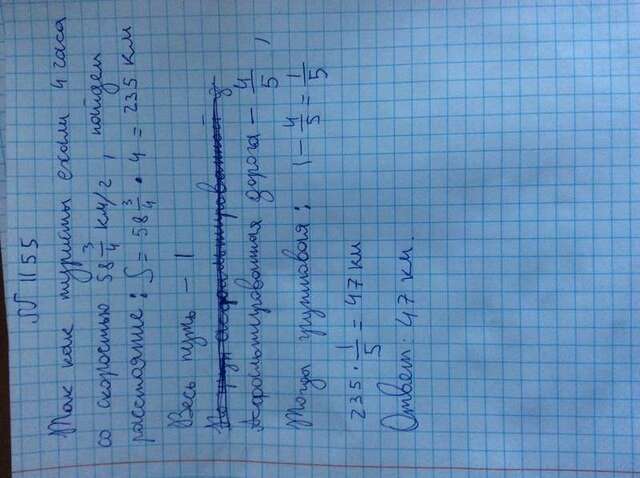 № 1155
Так как туристы ехали 4 часа
со скоростью 58 3/4 км/г, найдем
расстояние: S = 58 3/4 • 4 = 235 км
Весь путь – 1
Асфальтированная дорога – 4/5,
Тогда грунтовая: 1 – 4/5 = 1/5
235 · 1/5 = 47 км
Ответ: 47 км.